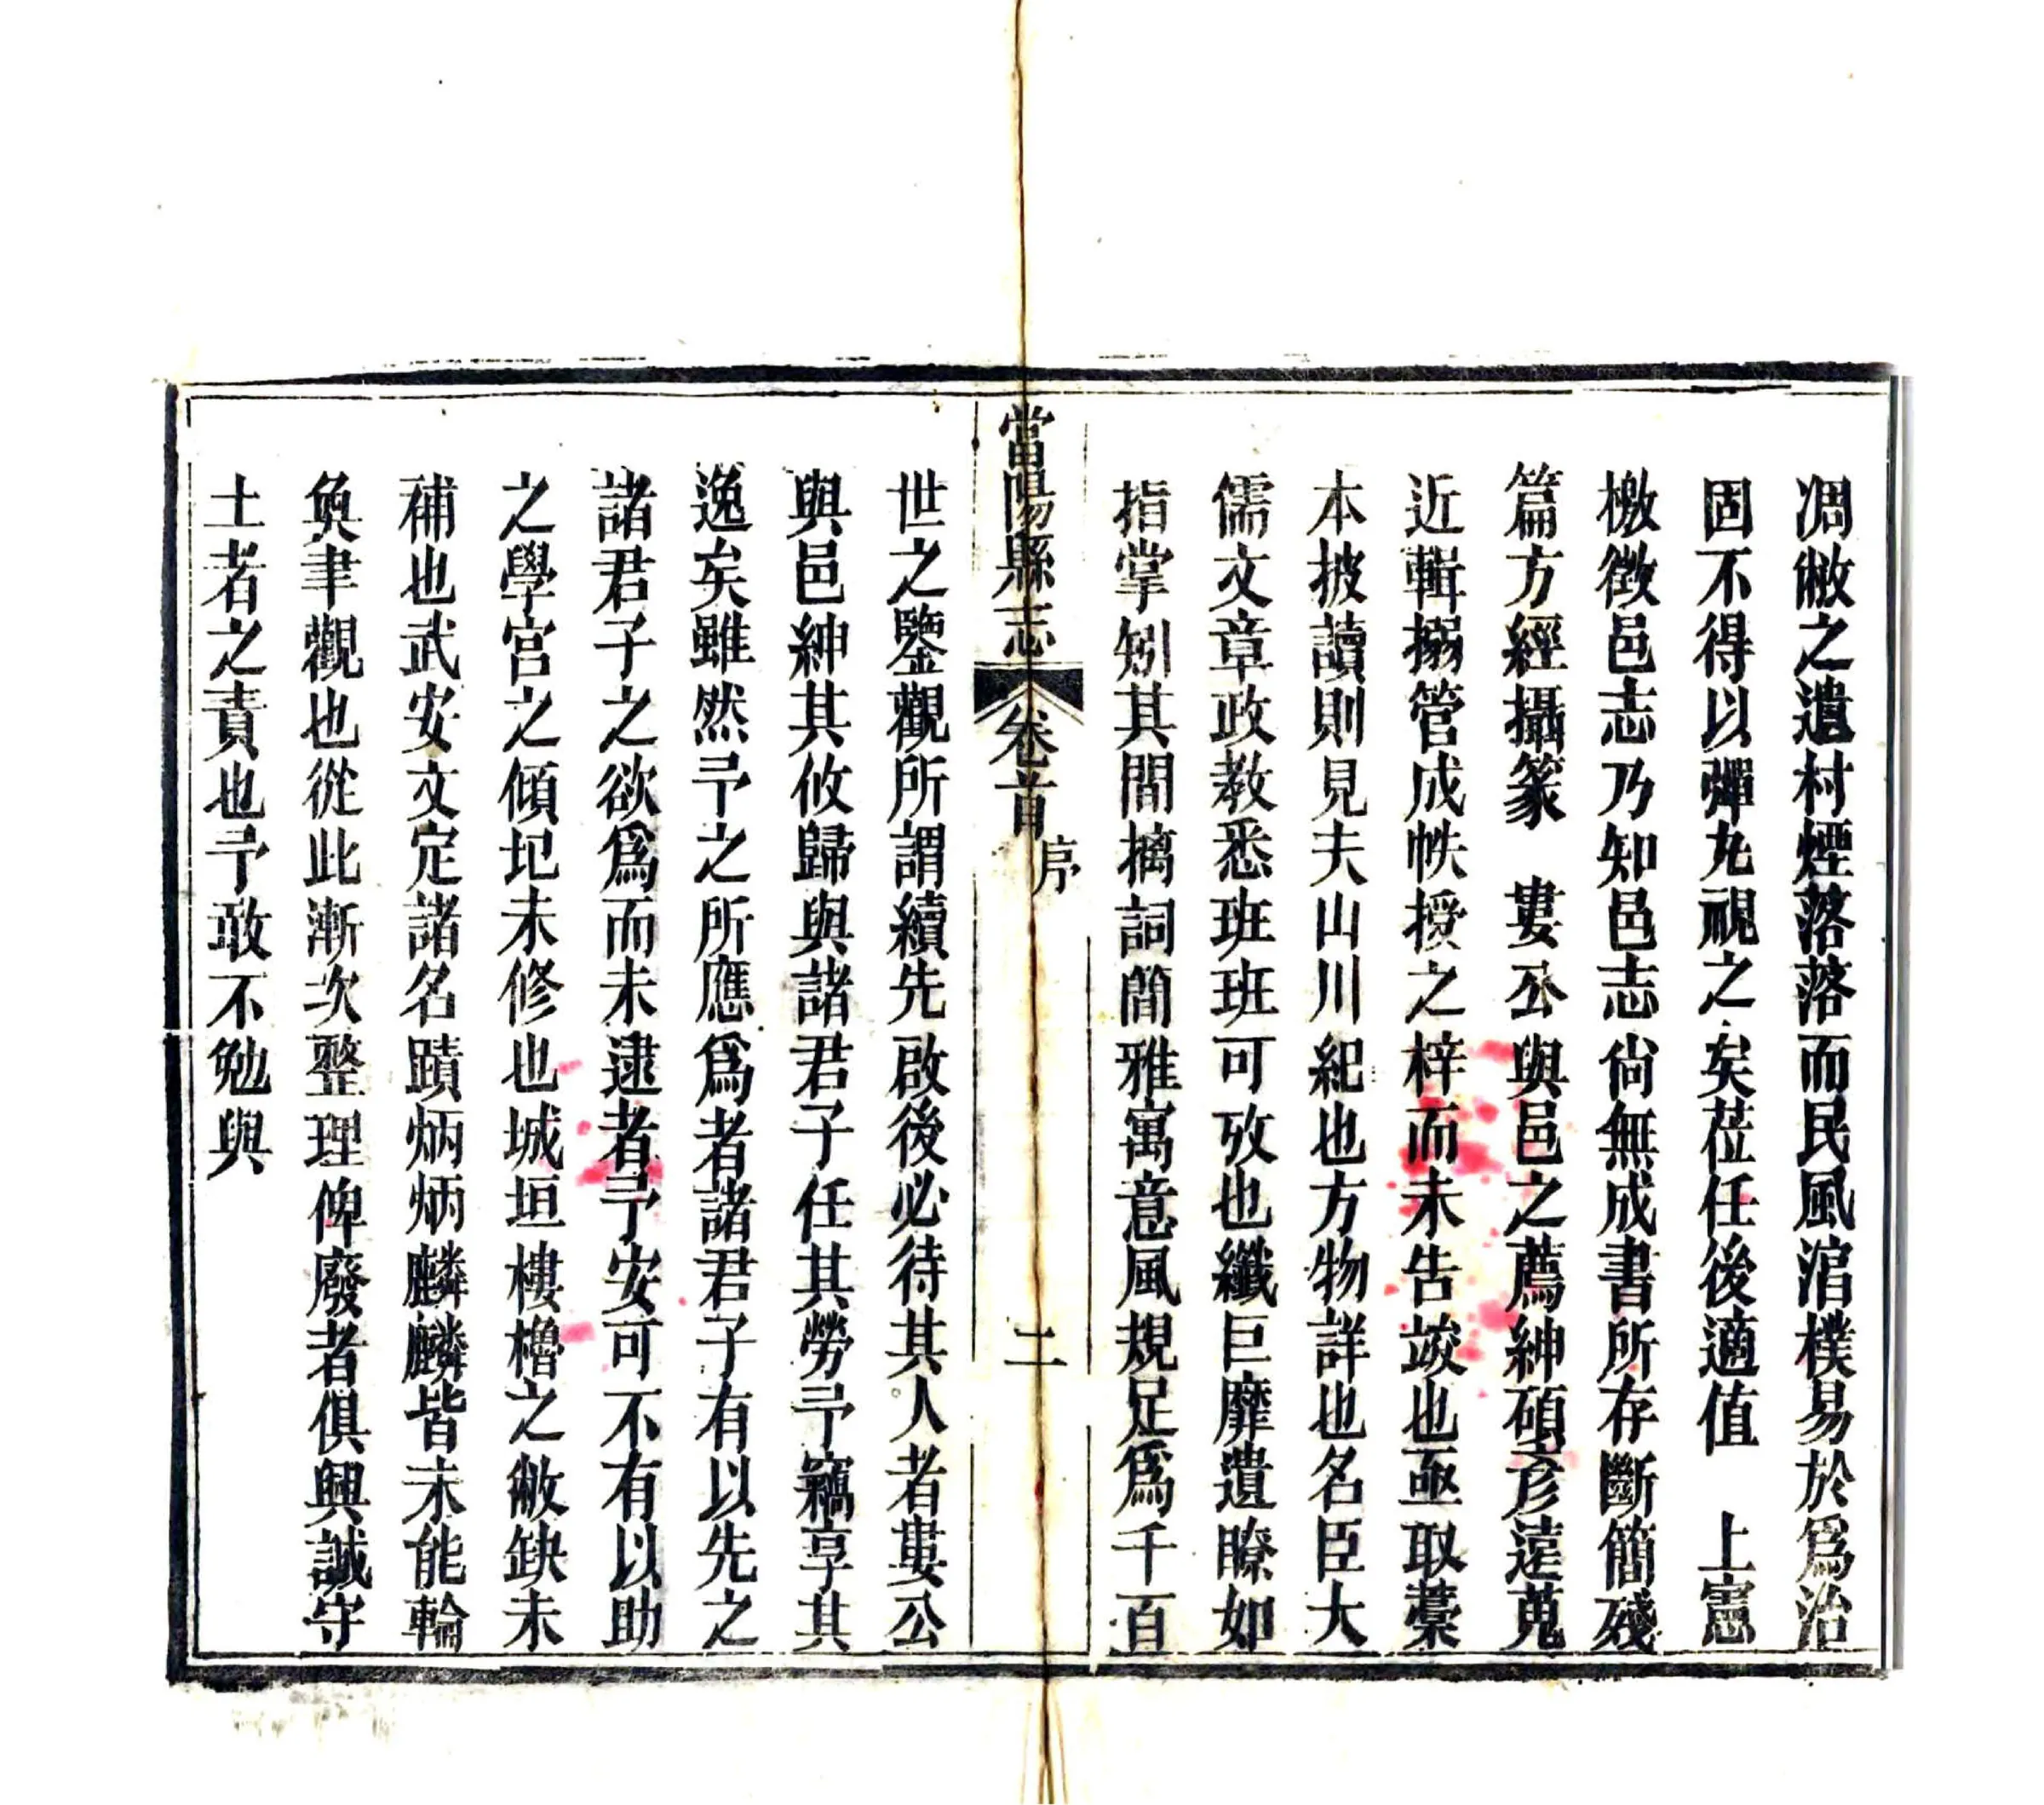 凋敝之遺村煙落落而民風涫樸易於爲治
固不得以彈丸視之矣莅任後適值　上憲
檄徴邑志乃知邑志尚無成書所存斷簡殘
篇方經攝篆　婁公與邑之薦紳碩彥遠蒐
近輯搦管成帙授之梓而未告竣也亟取藁
本披讀則見夫山川紀也方物詳也名臣大
儒文章政教悉班班可攷也纖巨靡遺瞭如
指掌矧其間摛詞簡雅寓意風規足爲千百
當陽縣志
卷首
序
二
世之鑒觀所謂續先啟後必待其人者婁公
與邑紳其攸歸與諸君子任其勞予竊享其
逸矣雖然予之所應爲者諸君子有以先之
諸君子之欲爲而未逮者予安可不有以助
之學宮之傾圮未修也城垣樓櫓之敝缺未
補也武安文定諸名蹟炳炳麟麟皆未能輪
奐聿觀也從此漸次整理俾廢者俱興誠守
土者之責也予敢不勉與